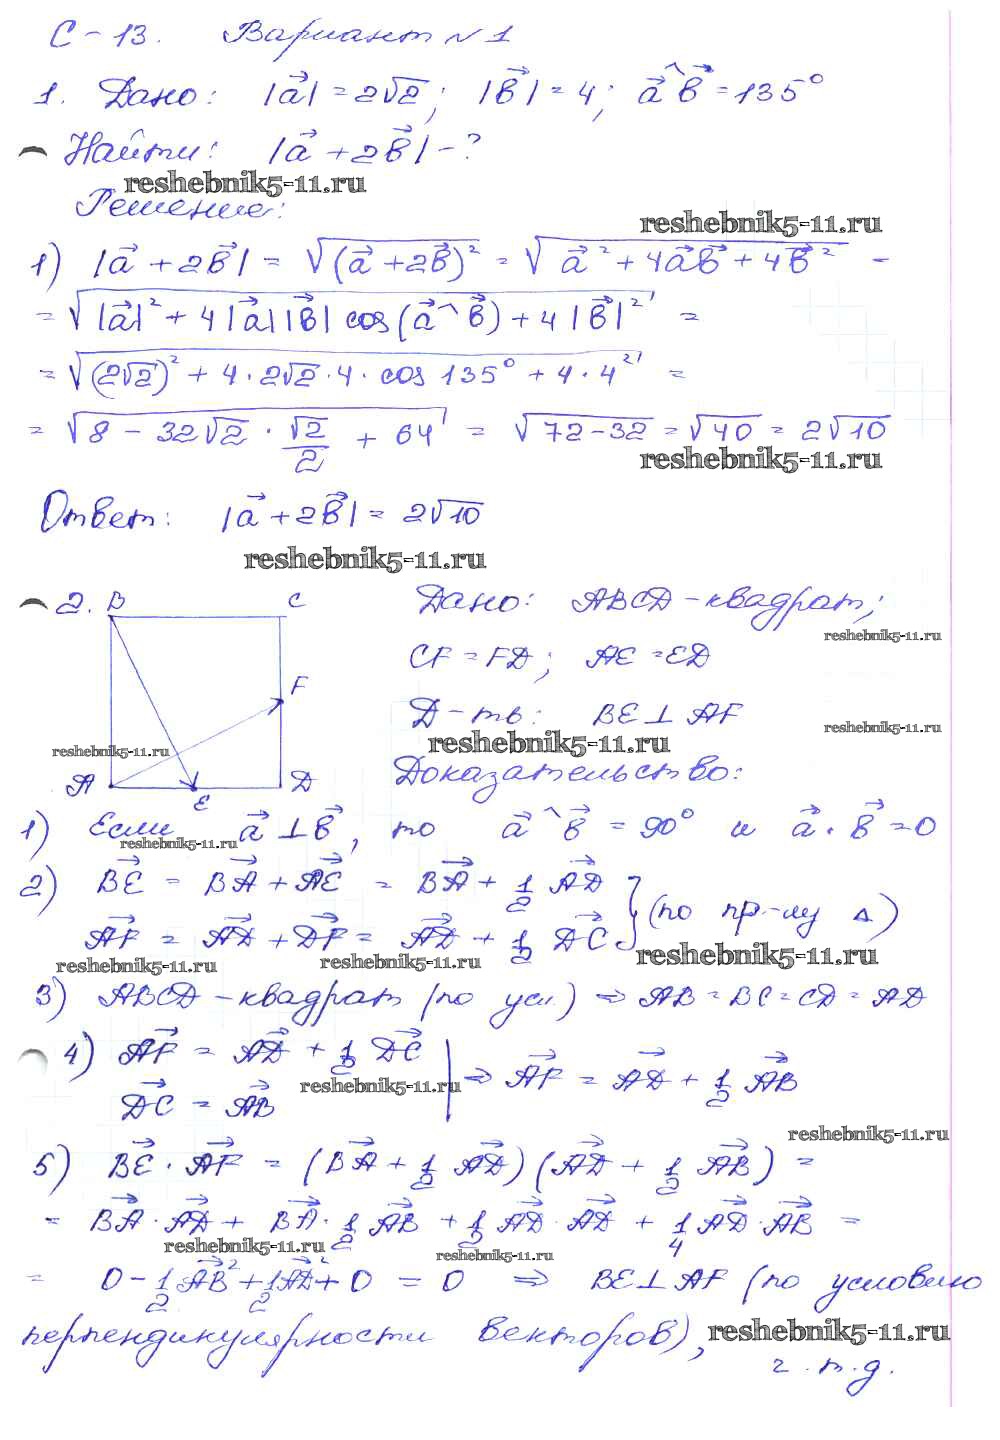 С-13. Вариант №1
1. Дано: |a⃗| = 2√2; |b⃗| = 4; a⃗^b⃗ = 135°
Найти: |a⃗ + 2b⃗| - ?
reshebnik5-11.ru
Решение:
reshebnik5-11.ru
1) |a⃗ + 2b⃗| = √(a⃗ + 2b⃗)² = √a⃗² + 4a⃗b⃗ + 4b⃗² =
= √|a⃗|² + 4|a⃗||b⃗| cos(a⃗^b⃗) + 4|b⃗|² =
= √(2√2)² + 4·2√2·4·cos 135° + 4·4² =
= √8 - 32√2 · √2/2 + 64 = √72-32 = √40 = 2√10
reshebnik5-11.ru
Ответ: |a⃗ + 2b⃗| = 2√10
reshebnik5-11.ru
2. B C
F
A E D
reshebnik5-11.ru
Дано: ABCD - квадрат;
reshebnik5-11.ru
CF = FD; AE = ED
Д-ть: BE ⊥ AF
reshebnik5-11.ru
reshebnik5-11.ru
Доказательство:
1) Если a⃗ ⊥ b⃗, то a⃗^b⃗ = 90° и a⃗·b⃗ = 0
reshebnik5-11.ru
2) BE⃗ = BA⃗ + AE⃗ = BA⃗ + 1/2 AD⃗
AF⃗ = AD⃗ + DF⃗ = AD⃗ + 1/2 DC⃗ } (по пр-лу Δ)
reshebnik5-11.ru
reshebnik5-11.ru
reshebnik5-11.ru
3) ABCD - квадрат (по усл) ⇒ AB = BC = CD = AD
4) AF⃗ = AD⃗ + 1/2 DC⃗ | ⇒ AF⃗ = AD⃗ + 1/2 AB⃗
reshebnik5-11.ru
DC⃗ = AB⃗
reshebnik5-11.ru
5) BE⃗ · AF⃗ = (BA⃗ + 1/2 AD⃗)(AD⃗ + 1/2 AB⃗) =
= BA⃗·AD⃗ + BA⃗·1/2 AB⃗ + 1/2 AD⃗·AD⃗ + 1/4 AD⃗·AB⃗ =
reshebnik5-11.ru
reshebnik5-11.ru
= 0 - 1/2 AB⃗² + 1/2 AD⃗² + 0 = 0 ⇒ BE ⊥ AF (по условию
перпендикулярности векторов),
reshebnik5-11.ru
ч.т.д.